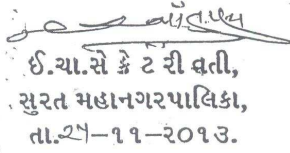 ઈ.ચા.સેક્રેટરી વતી,
સુરત મહાનગરપાલિકા,
તા.૨૫-૧૧-૨૦૧૩.